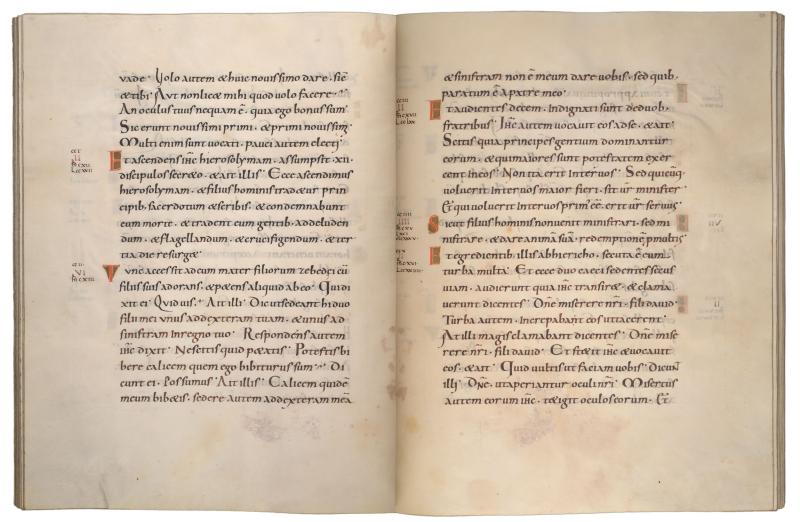 vade · Volo autem & huic novissimo dare · sic
& tibi · Aut non lic& mihi quod volo facere ·
An oculus tuus nequam ē · quia ego bonus sum ·
Sic erunt novissimi primi · & primi novissimi ·
Multi enim sunt vocati · pauci autem electi ·
Et ascendens ihc hierosolymam · assumpsit · xii ·
discipulos secr&o · & ait illis · Ecce ascendimus
hierosolymam · & filius hominis trad&ur prin
cipib · sacerdotum & scribis · & condemnabunt
eum morte · & tradent eum gentib · ad deluden
dum · & flagellandum · & crucifigendum · & ter
tia die resurg& ·
Tunc accessit ad eum mater filiorum zebedei cū
filiis suis adorans · & p&ens aliquid ab eo · Qui di
xit ei · Quid vis · Ait illi · Dic ut sedeant hi duo
filii mei unus ad dexteram tuam · & unus ad
sinistram in regno tuo · Respondens autem
ihc dixit · Nescitis quid p&atis · Potestis bi
bere calicem quem ego bibiturus sum · Di
cunt ei · Possumus · Ait illis · Calicem quidē
meum bib&is · sedere autem ad dexteram meā
& sinistram non ē meum dare vobis · sed quib ·
paratum ē a patre meo ·
Et audientes decem · indignati sunt de duob ·
fratribus · Ihc autem vocavit eos ad se · & ait ·
Scitis quia principes gentium dominantur
eorum · & qui maiores sunt potestatem exer
cent in eos · Non ita erit inter vos · Sed quicūq
voluerit inter vos maior fieri · sit vr minister ·
Et qui voluerit inter vos prim' eē · erit vr servus ·
Sicut filius hominis non venit ministrari · sed mi
nistrare · & dare animā suā · redemptionē p multis ·
Et egredientib · illis ab hiericho · secuta ē eum
turba multa · Et ecce duo caeci sedentes secus
viam · audierunt quia ihc transir& · & clama
verunt dicentes · Dne miserere nri · fili david ·
Turba autem · increpabant eos ut tacerent ·
At illi magis clamabant dicentes · Dne mise
rere nri · fili david · Et st&it ihc & vocavit
eos · & ait · Quid vultis ut faciam vobis · Dicunt
illi · Dne · ut aperiantur oculi nri · Misertus
autem eorum ihc · t&igit oculos eorum · Et